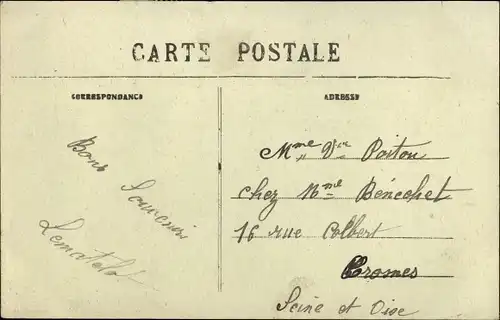 CARTE POSTALE
CORRESPONDANCE
ADRESSE
Bons
Souvenirs
Mme Vve Poitou
chez Mme Bénechet
16 rue Colbert
Cromes
Seine et Oise